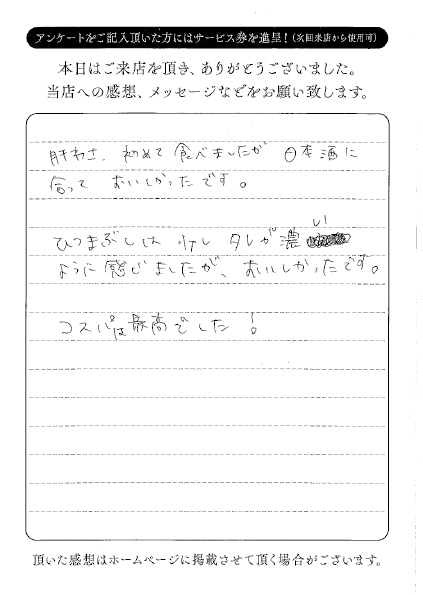 アンケートをご記入頂いた方にはサービス券を進呈！（次回来店から使用可）
本日はご来店を頂き、ありがとうございました。
当店への感想、メッセージなどをお願い致します。
肝わさ、初めて食べましたが 日本酒に
合って おいしかったです。
ひつまぶしは 少し タレが濃い
ように感じましたが、おいしかったです。
コスパは最高でした！
頂いた感想はホームページに掲載させて頂く場合がございます。